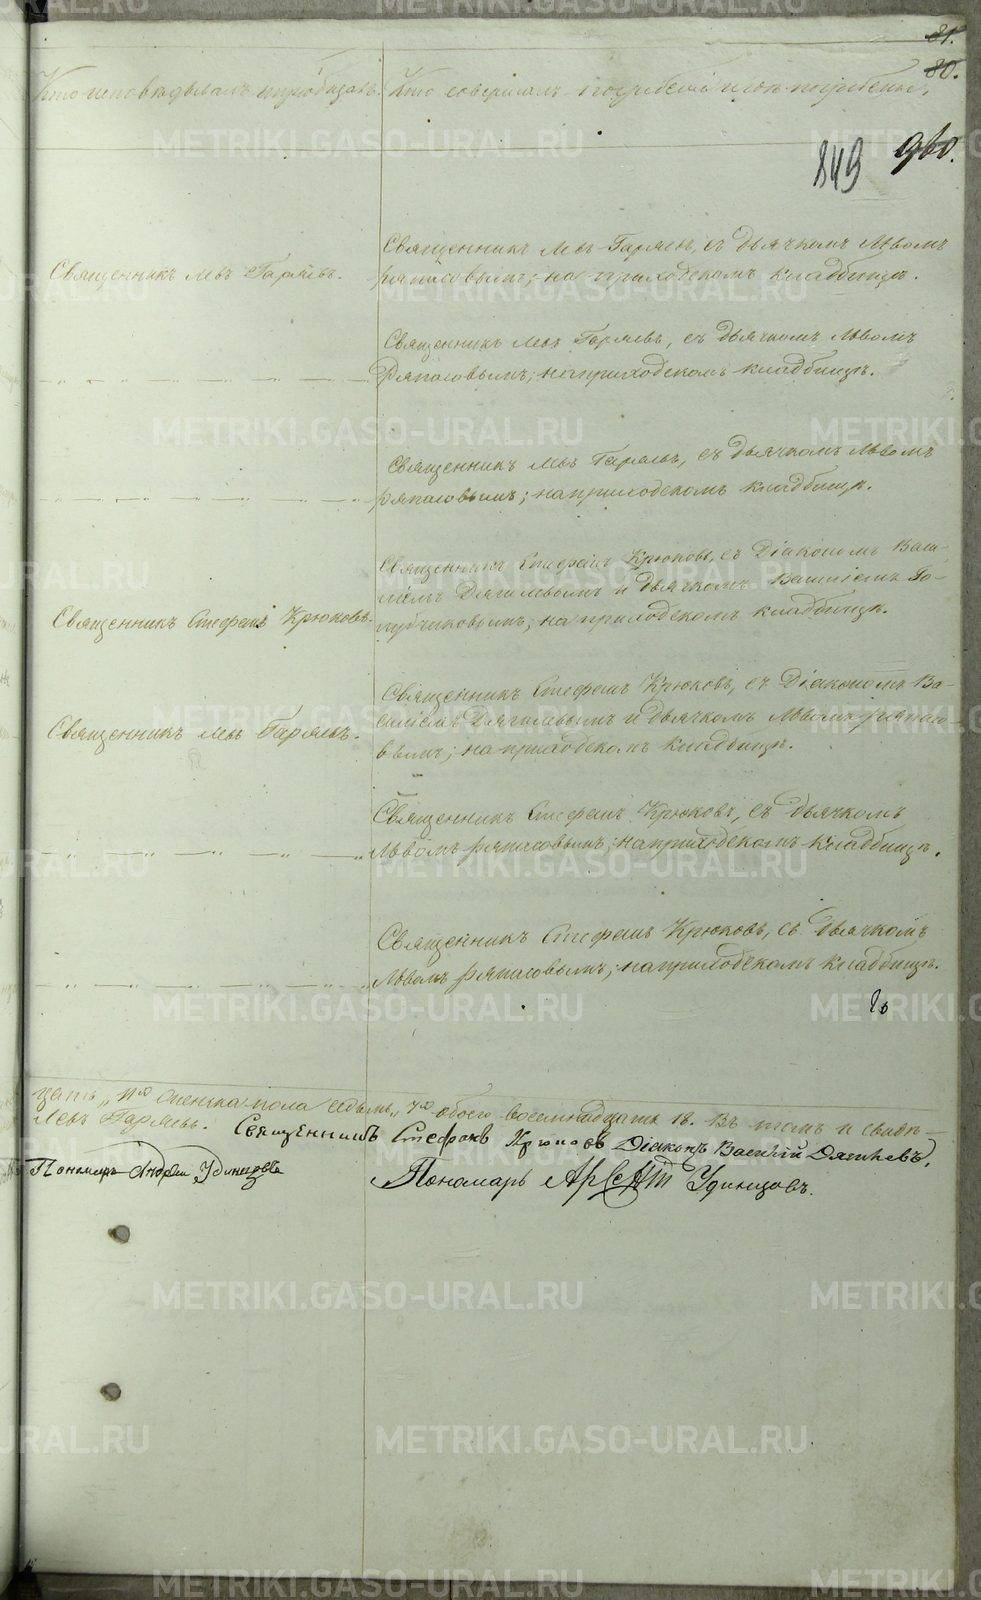 81.
80.
Кто исповѣдывалъ и пріобщалъ.
Кто совершалъ погребеніе и гдѣ погребены.
849
960.
Священникъ Левъ Гаряевъ.
Священникъ Левъ Гаряевъ, съ дьячкомъ Львомъ
Ряпасовымъ; на приходскомъ кладбищѣ.
Священникъ Левъ Гаряевъ, съ дьячкомъ Львомъ
Ряпасовымъ; на приходскомъ кладбищѣ.
Священникъ Левъ Гаряевъ, съ дьячкомъ Львомъ
Ряпасовымъ; на приходскомъ кладбищѣ.
Священникъ Стефанъ Крюковъ.
Священникъ Стефанъ Крюковъ, съ Діакономъ Васи-
ліемъ Дягилевымъ и дьячкомъ Василіемъ Го-
лубчиковымъ; на приходскомъ кладбищѣ.
Священникъ Левъ Гаряевъ.
Священникъ Стефанъ Крюковъ, съ Діакономъ Ва-
силіемъ Дягилевымъ и дьячкомъ Львомъ Ряпасо-
вымъ; на приходскомъ кладбищѣ.
Священникъ Стефанъ Крюковъ, съ дьячкомъ
Львомъ Ряпасовымъ; на приходскомъ кладбищѣ.
Священникъ Стефанъ Крюковъ, съ дьячкомъ
Львомъ Ряпасовымъ; на приходскомъ кладбищѣ.
цать "11" женска пола седмь "7" обоего восемнадцать 18. Въ томъ и свидѣ-
Левъ Гаряевъ. Священникъ Стефанъ Крюковъ Діаконъ Василій Дягилевъ.
Пономарь Андрей Удинцовъ
Пономарь Арсеній Удинцовъ.
METRIKI.GASO-URAL.RU